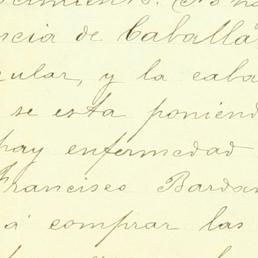 ncia de Caballa
gular, y la caba
se esta poniend
hay enfermedad
Francisco Bardan
á comprar las